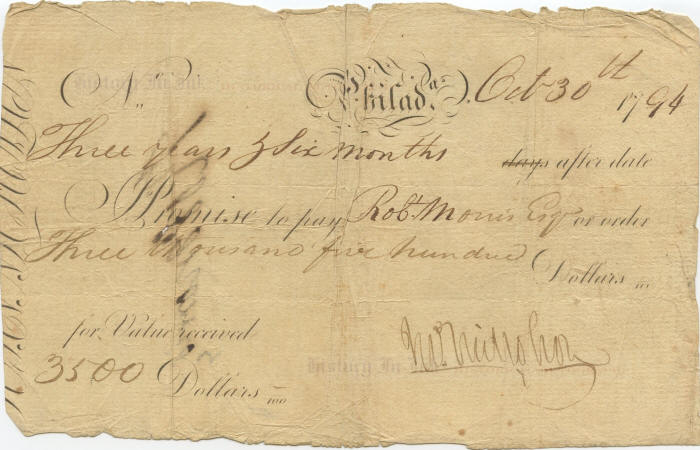 N.° Philad.ᵃ Oct 30th 1794
Three years & Six months days after date
I Promise to pay Rob.t Morris Esq.r or order
Three thousand five hundred Dollars 100
for Value received
3500 Dollars 100
Jno. Nicholson
History In Ink
History In